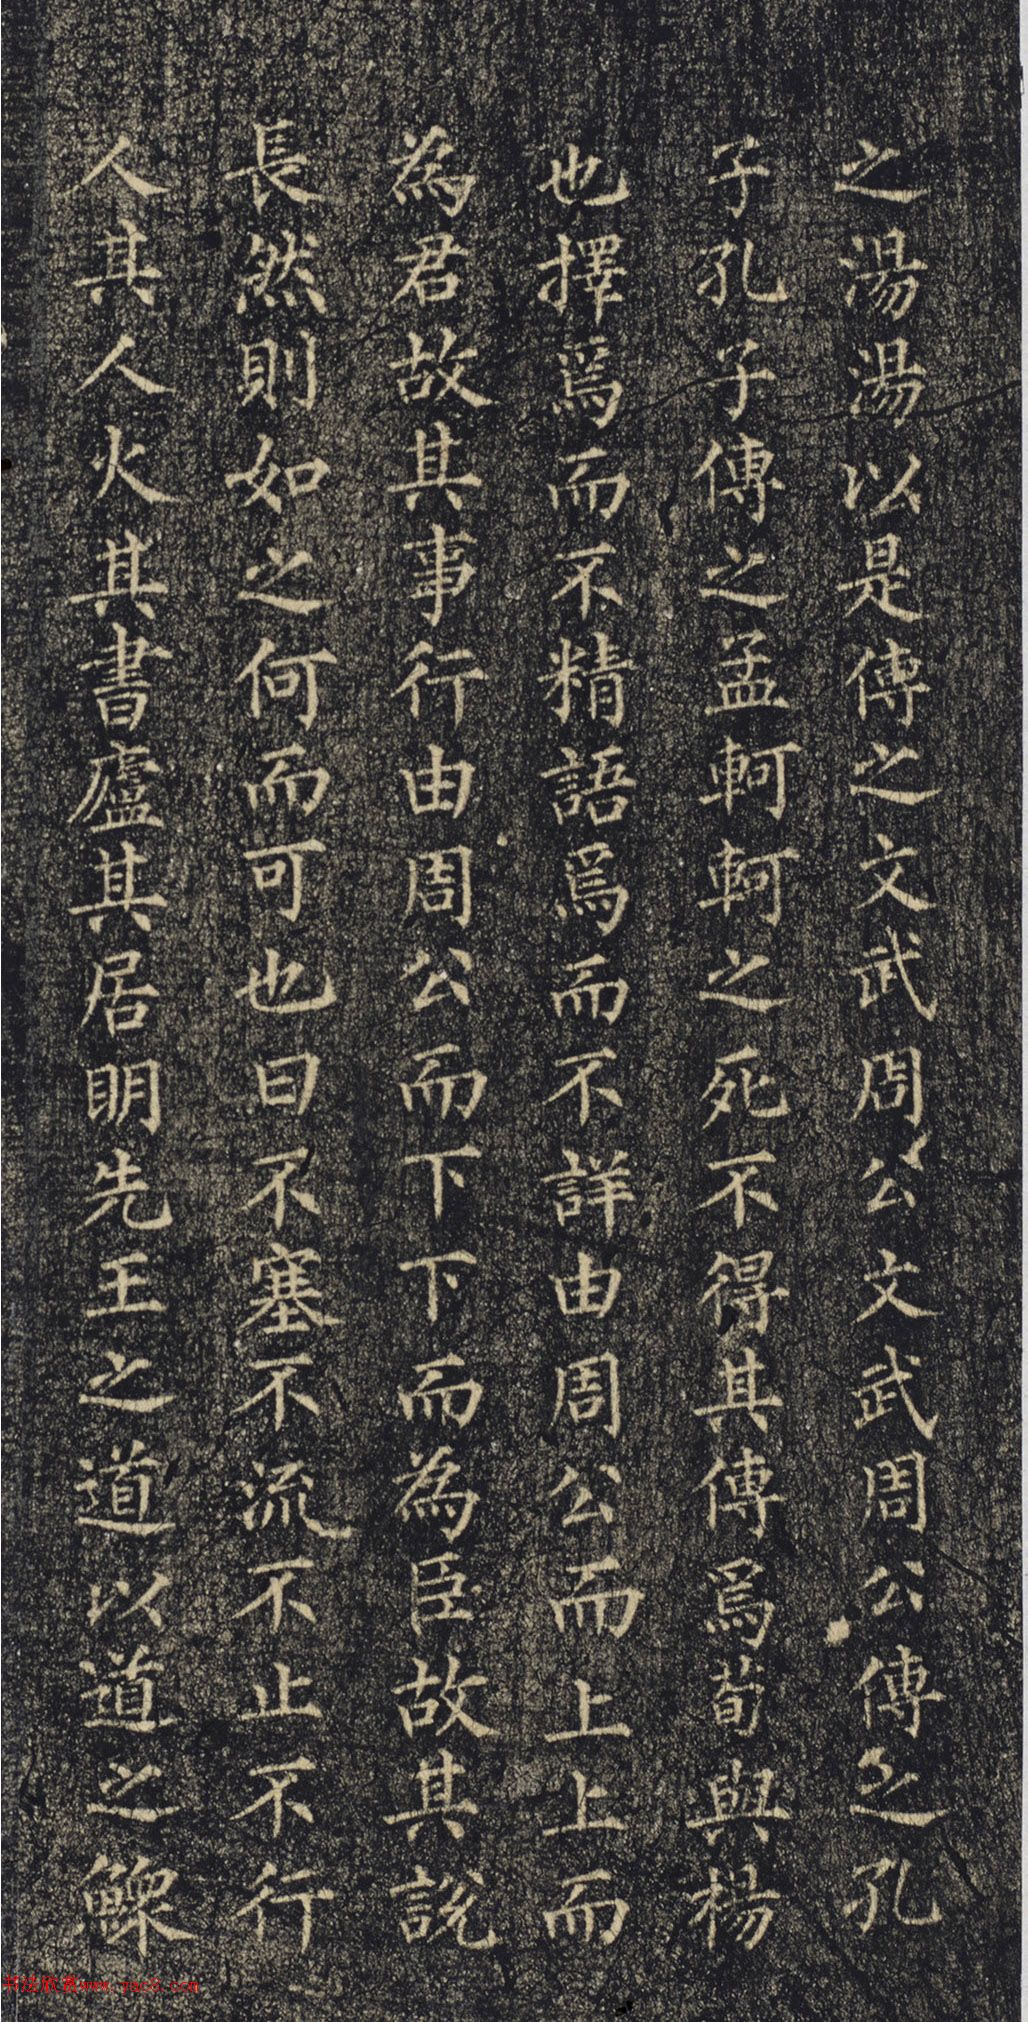 之湯湯以是傳之文武周公文武周公傳之孔
子孔子傳之孟軻軻之死不得其傳焉荀與楊
也擇焉而不精語焉而不詳由周公而上上而
為君故其事行由周公而下下而為臣故其說
長然則如之何而可也曰不塞不流不止不行
人其人火其書廬其居明先王之道以道之鰥
书法欣赏www.yac8.com